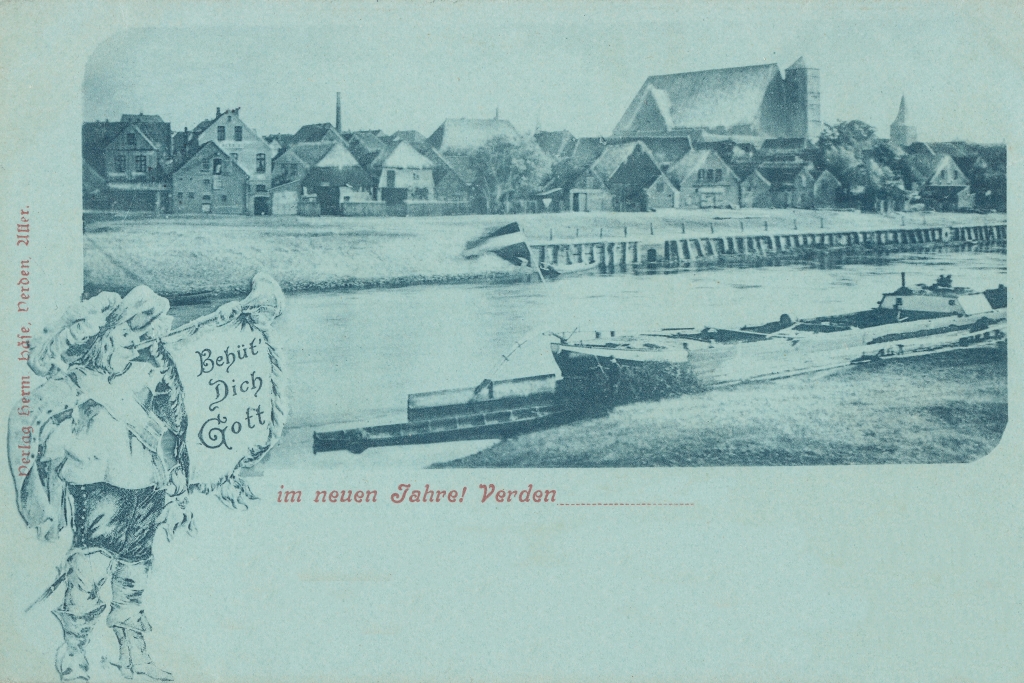 Behüt'
Dich
Gott
im neuen Jahre! Verden
Verlag Herm. Häje, Verden, Aller.